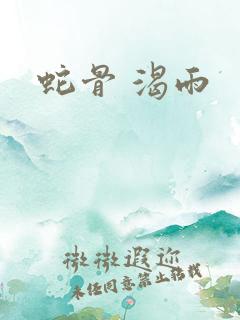 蛇骨 渴雨
微微遐迩
未经同意禁止转载